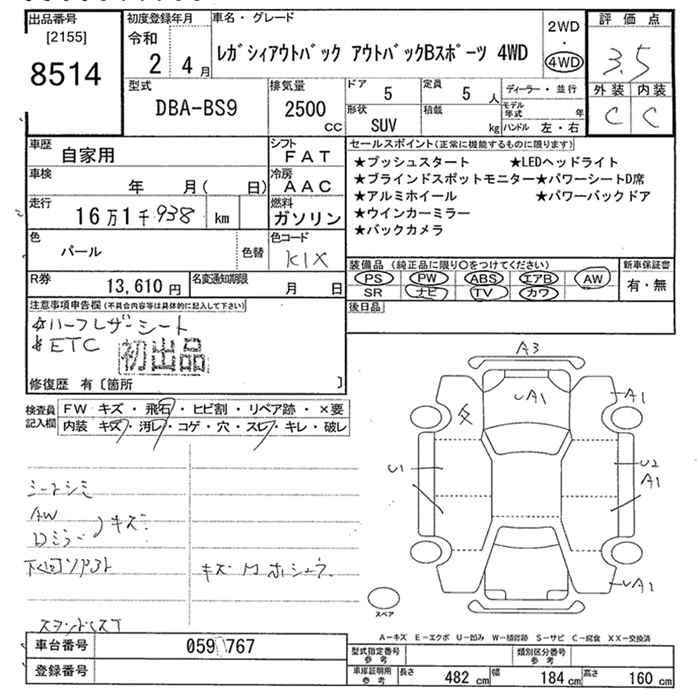 出品番号
[2155]
8514
初度登録年月
令和
2 4月
車名・グレード
ﾚｶﾞｼｨｱｳﾄﾊﾞｯｸ ｱｳﾄﾊﾞｯｸBｽﾎﾟｰﾂ 4WD
2WD
・
4WD
評価点
3.5
外装 内装
C C
型式
DBA-BS9
排気量
2500
CC
ドア
5
定員
5 人
形状
SUV
積載
kg
ディーラー・並行
モデル年式 年
ハンドル 左・右
車歴
自家用
シフト
FAT
車検
年 月( 日)
冷房
AAC
走行
16万1千938 km
燃料
ガソリン
色
パール
色替
色コード
K1X
R券
13,610 円
名変通知期限
月 日
セールスポイント(正常に機能するものに限ります)
★プッシュスタート ★LEDヘッドライト
★ブラインドスポットモニター★パワーシートD席
★アルミホイール ★パワーバックドア
★ウインカーミラー
★バックカメラ
装備品(純正品に限り○をつけてください)
PS PW ABS エアB AW
SR ナビ TV カワ
新車保証書
有・無
後日品
注意事項申告欄(不具合内容等は具体的に記入して下さい)
*ハーフレザーシート
*ETC
初出品
修復歴 有〔箇所 〕
検査員記入欄
FW キズ・飛石・ヒビ割・リペア跡・×要
内装 キズ・汚レ・コゲ・穴・スレ・キレ・破レ
シートシミ
AW
Dミラー
キズ
キズ
A3
UA1
A1
U1
U2
A1
UA1
スペア
A−キズ E−エクボ U−凹み W−補修跡 S−サビ C−腐食 XX−交換済
車台番号
059 767
登録番号
型式指定番号
参考
類別区分番号
参考
車庫証明用
参考
長さ 482 cm 幅 184 cm 高さ 160 cm